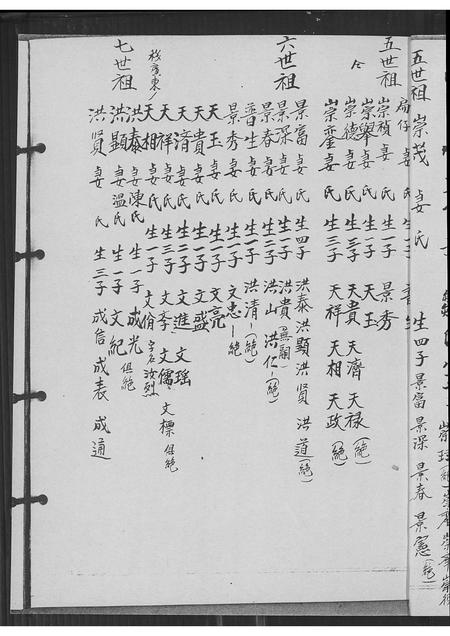 五世祖 崇茂 妣氏 生四子 景富 景深 景春 景憲(絕)
五世祖
崇禎 妣氏 生一子 景秀
崇舉 妣氏 生一子 天玉
崇德 妣氏 生三子 天貴 天濟 天祿(絕)
崇鑾 妣氏 生三子 天祥 天相 天政(絕)
六世祖
景富 妣氏 生四子 洪泰 洪顯 洪賢 洪道(絕)
景深 妣氏 生一子 洪貴(無嗣)
景春 妣氏 生二子 洪山 洪仁(絕)
普生 妣氏 生一子 洪清(絕)
景秀 妣氏 生一子 文忠(絕)
天玉 妣氏 生一子 文亮
天貴 妣氏 生一子 文盛
天濟 妣氏 生二子 文進 文瑤
天祥 妣氏 生三子 文李 文儒 文標 俱絕
天相 妣氏 生一子 文脩 字名汝烈
七世祖
洪泰 妣陳氏 生一子 成光 俱絕
洪顯 妣溫氏 生一子 文紀
洪賢 妣氏 生三子 成信 成表 成通